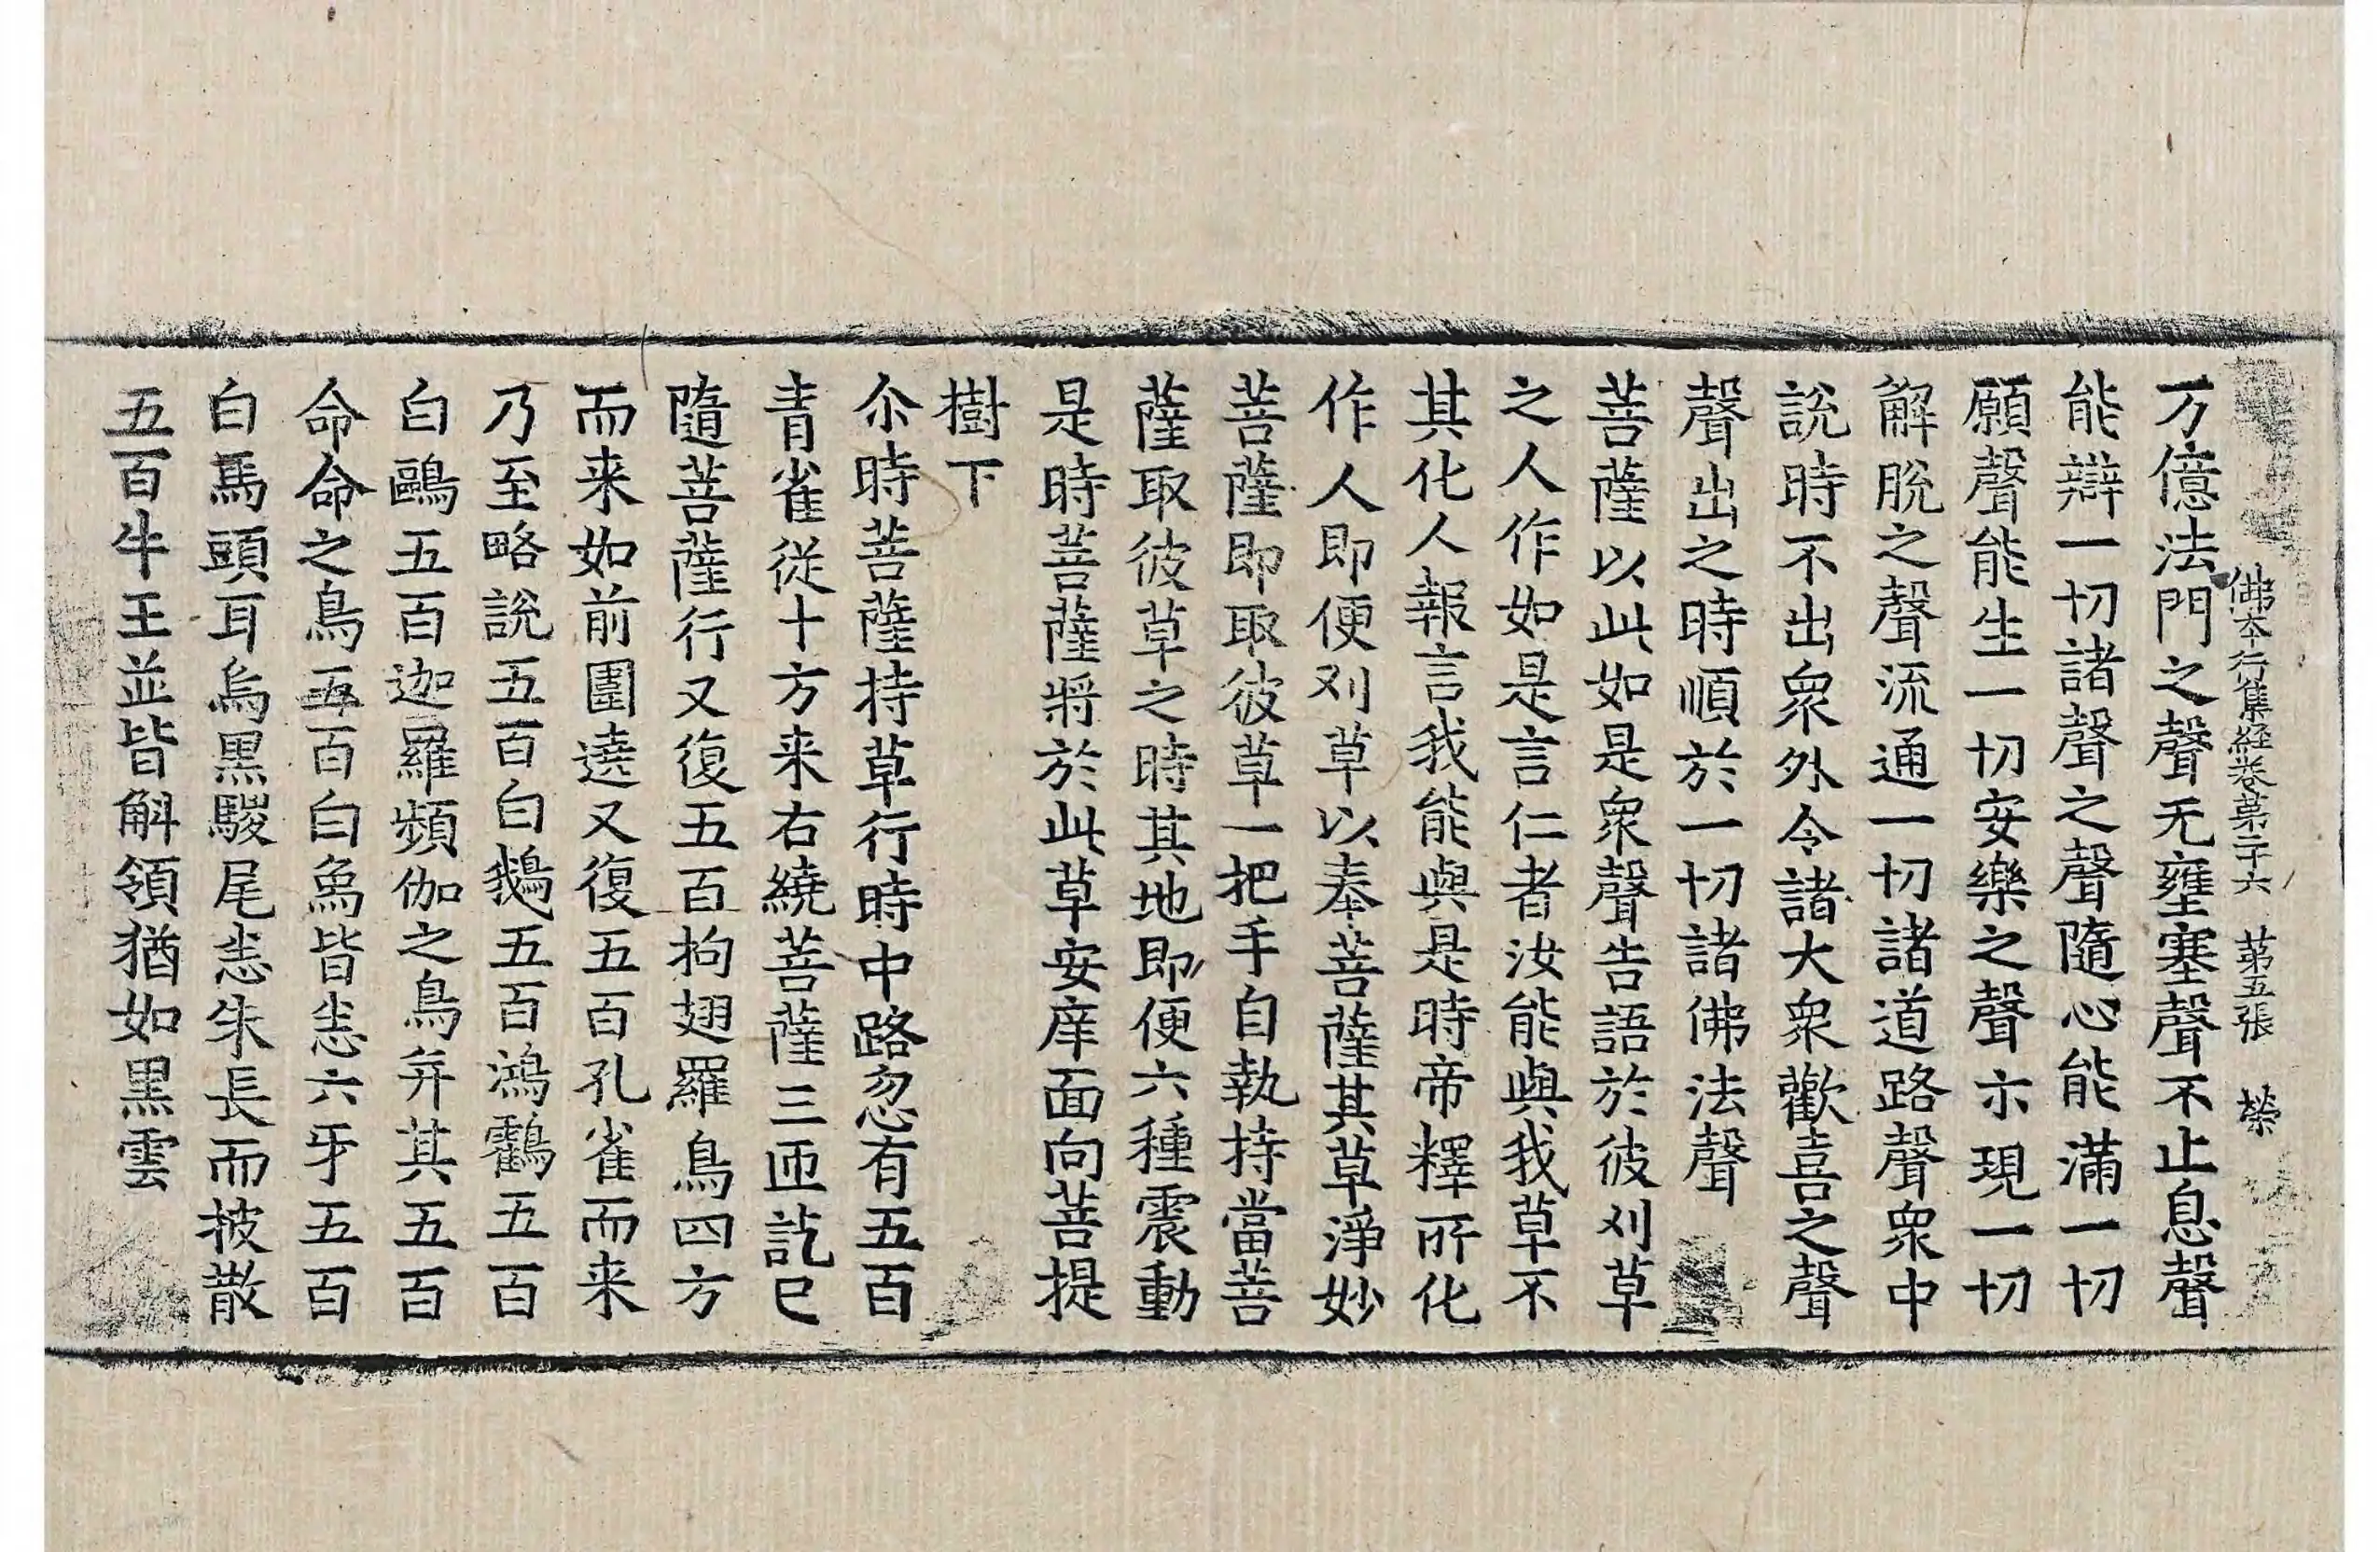 佛本行集経卷苐二十六　苐五張　榮
万億法門之聲无壅塞聲不止息聲
能辯一切諸聲之聲隨心能滿一切
願聲能生一切安樂之聲示現一切
解脫之聲流通一切諸道路聲衆中
說時不出衆外令諸大衆歡喜之聲
聲出之時順於一切諸佛法聲
菩薩以此如是衆聲告語於彼刈草
之人作如是言仁者汝能與我草不
其化人報言我能與是時帝釋所化
作人即便刈草以奉菩薩其草淨妙
菩薩即取彼草一把手自執持當菩
薩取彼草之時其地即便六種震動
是時菩薩將於此草安庠面向菩提
樹下
尒時菩薩持草行時中路忽有五百
青雀從十方来右繞菩薩三匝訖已
隨菩薩行又復五百拘翅羅鳥四方
而来如前圍遶又復五百孔雀而来
乃至略說五百白鵝五百鴻鸖五百
白鷗五百迦羅頻伽之鳥并其五百
命命之鳥五百白象皆悉六牙五百
白馬頭耳烏黑騣尾悉朱長而披散
五百牛王並皆斛領猶如黑雲